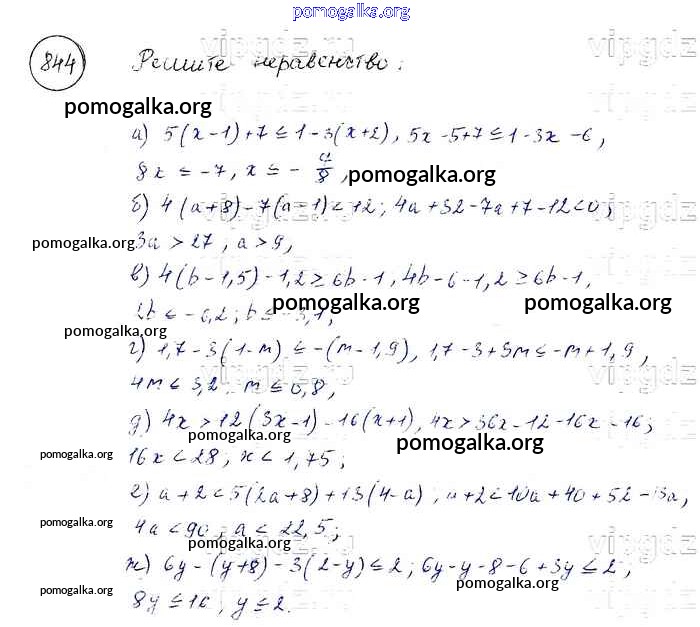 pomogalka.org
844 Решите неравенство:
pomogalka.org
а) 5(x-1)+7≤1-3(x+2), 5x-5+7≤1-3x-6,
8x ≤ -7, x ≤ -7/8,
pomogalka.org
б) 4(a+8)-7(a-1)<12; 4a+32-7a+7-12<0;
pomogalka.org
3a > 27, a > 9,
в) 4(b-1,5)-1,2≥6b-1, 4b-6-1,2≥6b-1,
2b ≤ -6,2; b ≤ -3,1,
pomogalka.org pomogalka.org
pomogalka.org
г) 1,7-3(1-m) ≤ -(m-1,9), 1,7-3+3m≤-m+1,9,
4m ≤ 3,2 m ≤ 0,8,
д) 4x>12(3x-1)-16(x+1), 4x>36x-12-16x-16;
pomogalka.org pomogalka.org
pomogalka.org
16x < 28; x < 1,75;
е) a+2<5(2a+8)+13(4-a); a+2<10a+40+52-13a,
pomogalka.org
4a < 90, a < 22,5;
pomogalka.org
ж) 6y-(y+8)-3(2-y)≤2; 6y-y-8-6+3y≤2;
pomogalka.org
pomogalka.org
8y ≤ 16, y ≤ 2.